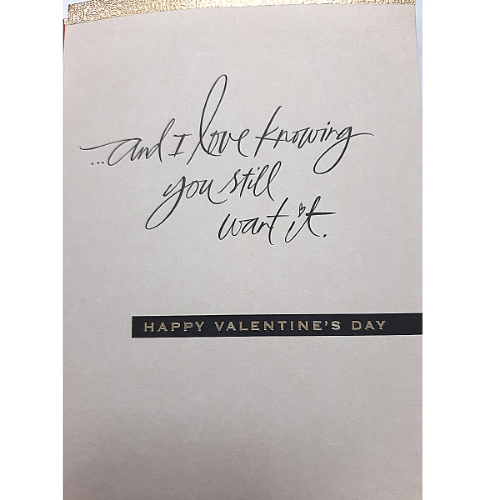 ...and I love knowing
you still
want it.
HAPPY VALENTINE'S DAY